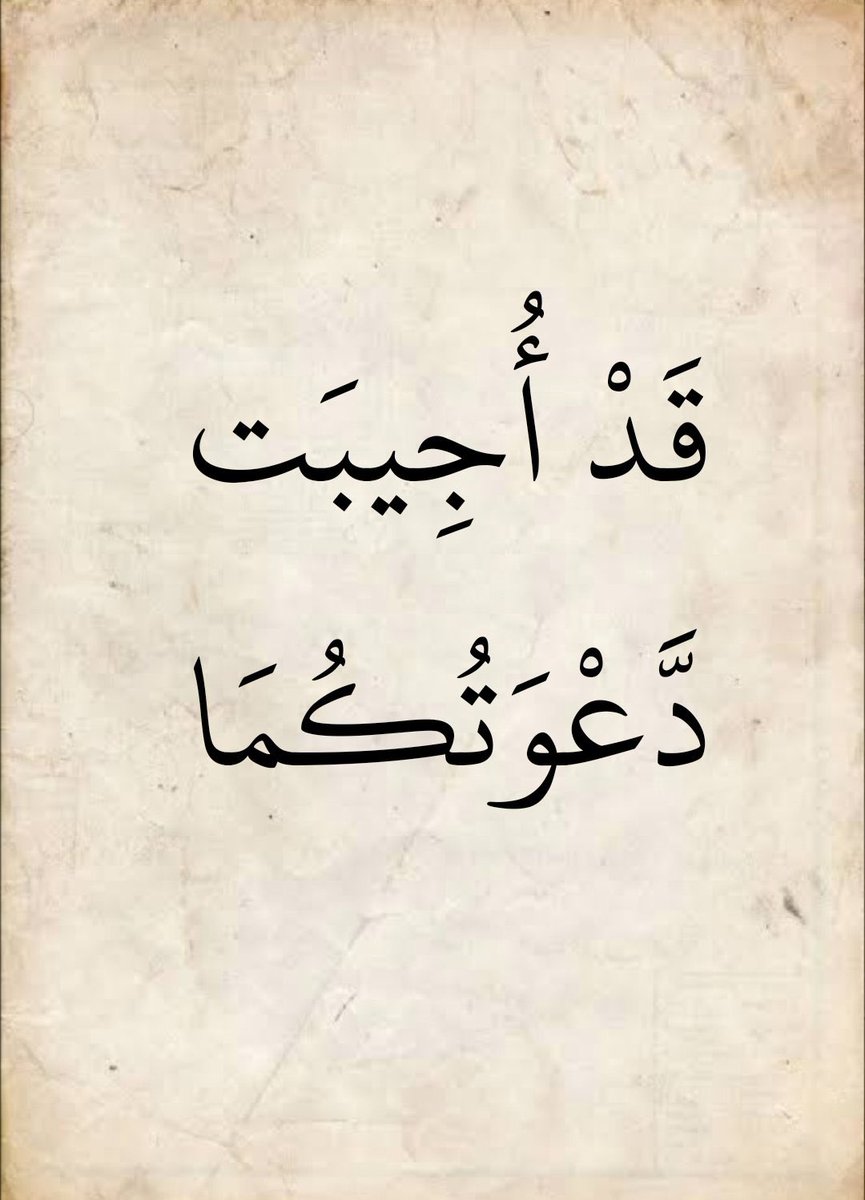 قَدْ أُجِيبَت
دَّعْوَتُكُمَا